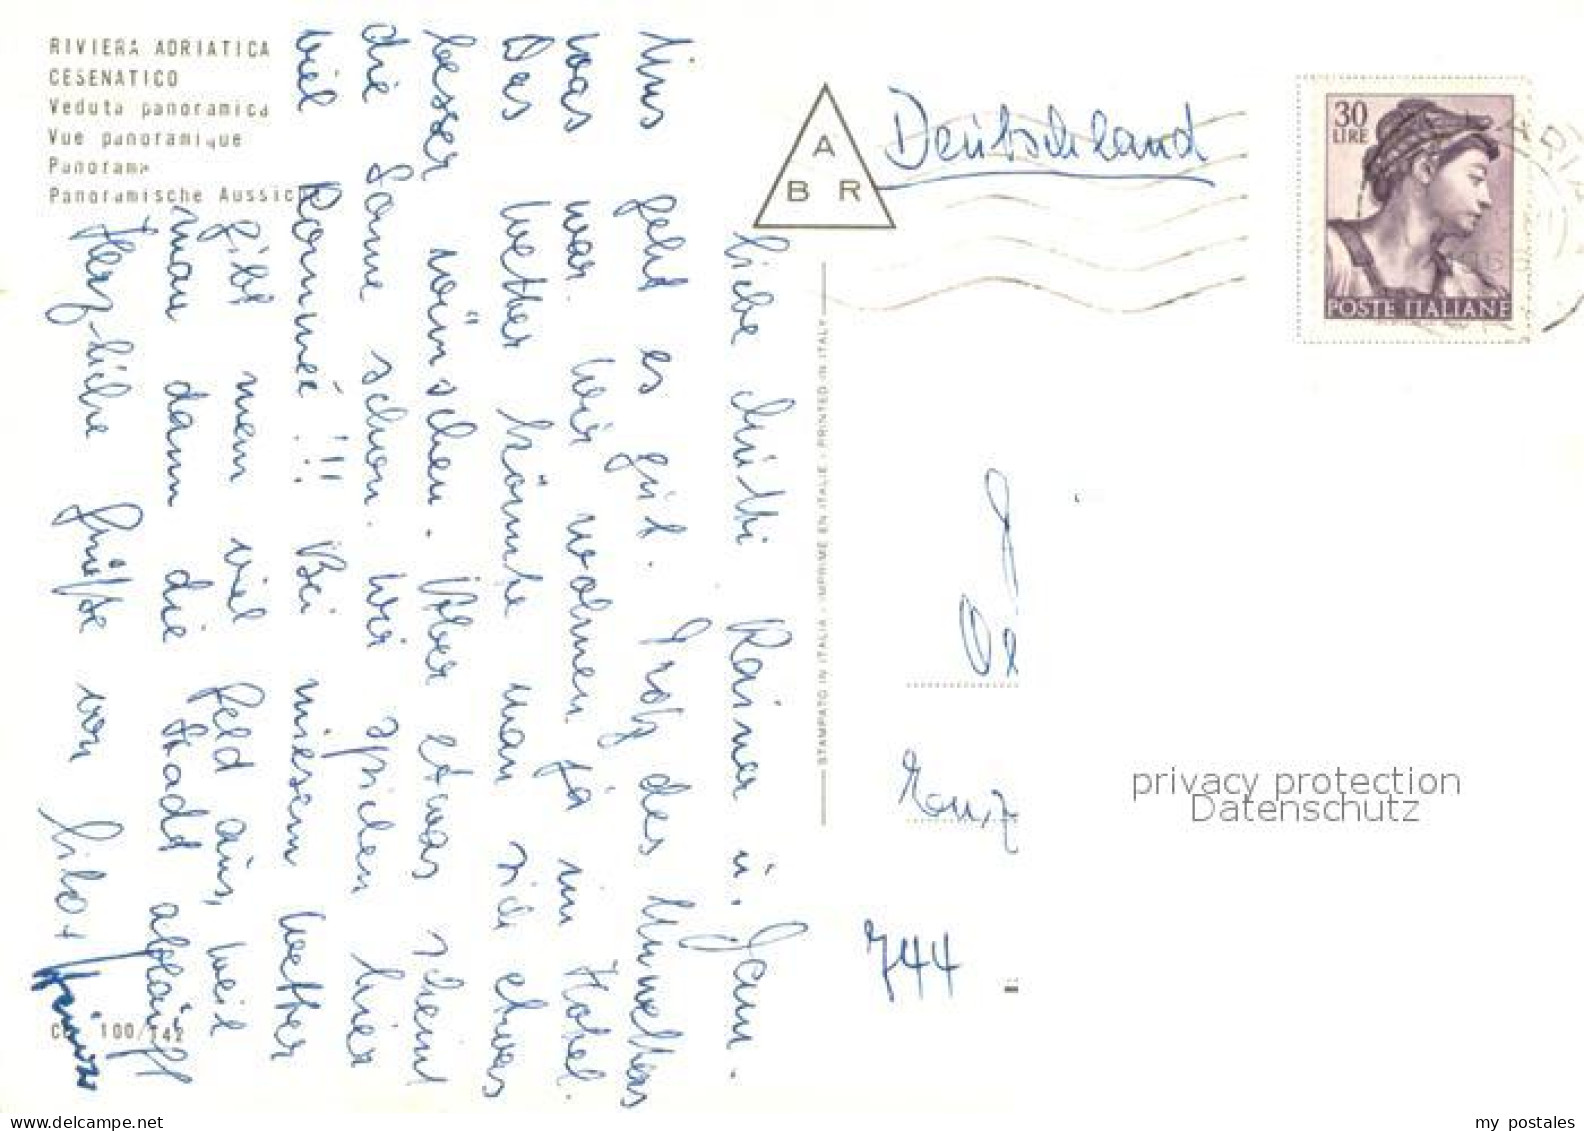 RIVIERA ADRIATICA
CESENATICO
Veduta panoramica
Vue panoramique
Panorama
Panoramische Aussicht
Liebe Mutti Rainer u. Jann.
Uns geht es gut. Trotz des Unwetters
was war. Wir wohnen ja im Hotel.
Das Wetter könnte man sich etwas
besser wünschen. Aber etwas scheint
die Sonne schon. Wir spielen hier
viel Rommeé!!! Bei miesem Wetter
gibt man viel Geld aus, weil
man dann die Stadt abläuft
Herzliche Grüße von Lilo +
100/142
STAMPATO IN ITALIA - IMPRIME EN ITALIE - PRINTED IN ITALY
A
B R
Deutschland
30
LIRE
POSTE ITALIANE
744
privacy protection
Datenschutz
my postales
www.delcampe.net